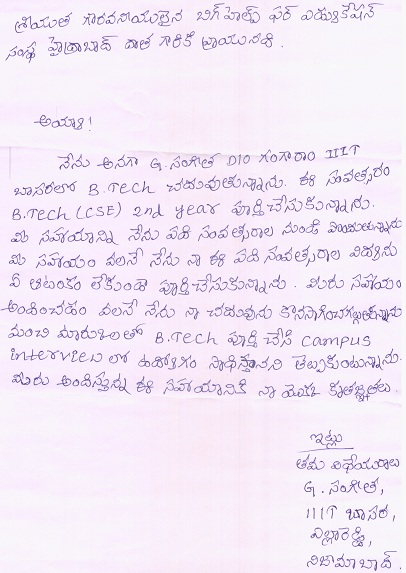 శ్రీయుత గౌరవనీయులైన బిగ్‌హెల్ప్ ఫర్ ఎడ్యుకేషన్
సంస్థ హైద్రాబాద్ దాత గారికి వ్రాయునది.
అయ్యా!
నేను అనగా G. సంగీత D/O గంగారాం IIIT
బాసరలో B.Tech చదువుతున్నాను. ఈ సంవత్సరం
B.Tech (CSE) 2nd year పూర్తి చేసుకున్నాను.
మీ సహాయాన్ని నేను పది సంవత్సరాల నుండి పొందుతున్నాను
మీ సహాయం వలనే నేను నా ఈ పది సంవత్సరాల విద్యను
ఏ ఆటంకం లేకుండా పూర్తి చేసుకున్నాను. మీరు సహాయం
అందించడం వలనే నేను నా చదువును కొనసాగించగల్గుతున్నాను
మంచి మార్కులతో B.Tech పూర్తి చేసి campus
interview లో ఉద్యోగం సాధిస్తానని తెల్పుకుంటున్నాను.
మీరు అందిస్తున్న ఈ సహాయానికి నా యొక్క కృతజ్ఞతలు.
ఇట్లు
తమ విధేయురాలు
G. సంగీత,
IIIT బాసర,
ఎల్లారెడ్డి,
నిజామాబాద్.